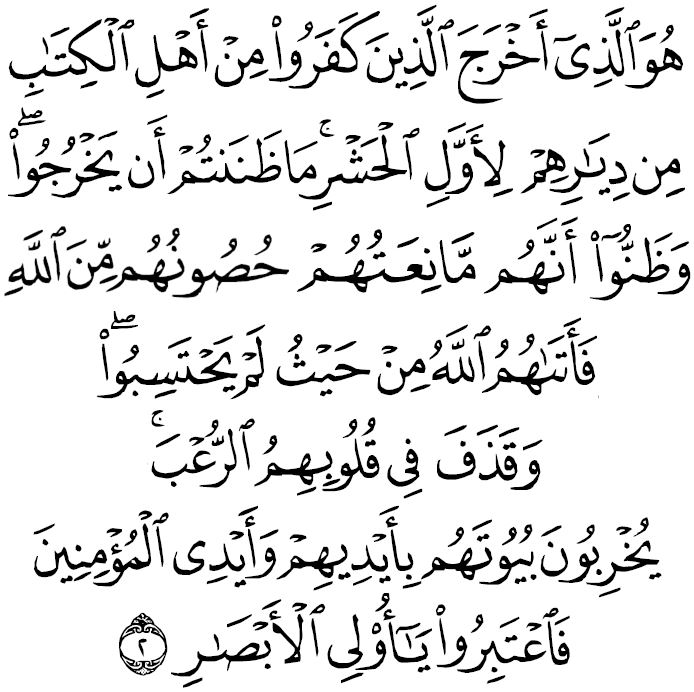 هُوَ ٱلَّذِىٓ أَخْرَجَ ٱلَّذِينَ كَفَرُوا۟ مِنْ أَهْلِ ٱلْكِتَٰبِ
مِن دِيَٰرِهِمْ لِأَوَّلِ ٱلْحَشْرِ ۚ مَا ظَنَنتُمْ أَن يَخْرُجُوا۟ ۖ
وَظَنُّوٓا۟ أَنَّهُم مَّانِعَتُهُمْ حُصُونُهُم مِّنَ ٱللَّهِ
فَأَتَىٰهُمُ ٱللَّهُ مِنْ حَيْثُ لَمْ يَحْتَسِبُوا۟ ۖ
وَقَذَفَ فِى قُلُوبِهِمُ ٱلرُّعْبَ ۚ
يُخْرِبُونَ بُيُوتَهُم بِأَيْدِيهِمْ وَأَيْدِى ٱلْمُؤْمِنِينَ
فَٱعْتَبِرُوا۟ يَٰٓأُو۟لِى ٱلْأَبْصَٰرِ ٢